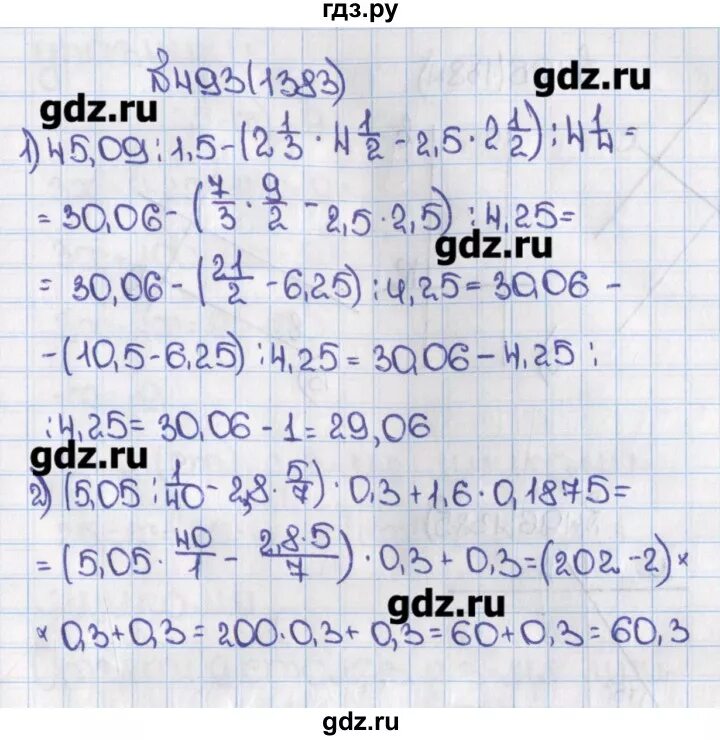 гдз.ру
№493(1383)
gdz.ru
gdz.ru
1) 45,09 : 1,5 - (2 1/3 · 4 1/2 - 2,5 · 2 1/2) : 4 1/4 =
= 30,06 - (7/3 · 9/2 - 2,5 · 2,5) : 4,25 =
gdz.ru
= 30,06 - (21/2 - 6,25) : 4,25 = 30,06 -
- (10,5 - 6,25) : 4,25 = 30,06 - 4,25 :
: 4,25 = 30,06 - 1 = 29,06
gdz.ru
2) (5,05 : 1/40 - 2,8 · 5/7) · 0,3 + 1,6 · 0,1875 =
= (5,05 · 40/1 - 2,8·5/7) · 0,3 + 0,3 = (202 - 2) ×
gdz.ru
× 0,3 + 0,3 = 200 · 0,3 + 0,3 = 60 + 0,3 = 60,3
gdz.ru